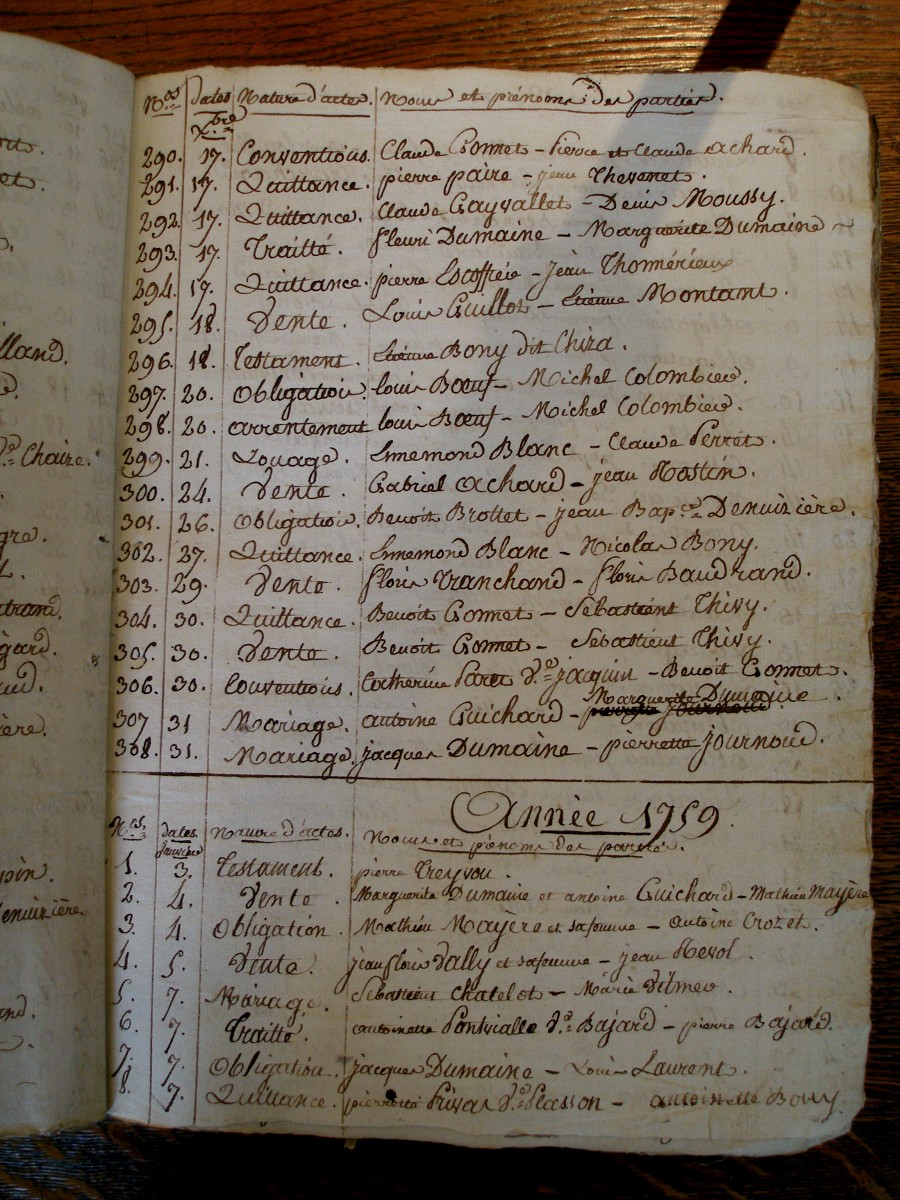 orts.
et.
lland.
V.e Chaize.
gre.
trand.
gard.
ud.
ière.
pin.
Denuizière.
and.
N.os dates Nature d'actes. Noms et prénoms des parties.
X.bre
290. 17. Conventions. Claude Gonnet - Pierre et Claude Achard.
291. 17. Quittance. pierre paire - jean Thevenet.
292. 17. Quittance. Claude Gayvallet - Denis Moussy.
293. 17. Traitté. fleuri Dumaine - Marguerite Dumaine
294. 17. Quittance. pierre Escoffiée - Jean Thomérieux
295. 18. Vente. Louis Guillot - Etienne Montant.
296. 18. Testament. Etienne Bony dit Chiza.
297. 20. Obligation. louis Bœuf - Michel Colombier.
298. 20. arrentement louis Bœuf - Michel Colombier.
299. 21. Louage. Ennemond Blanc - Claude Perret.
300. 24. Vente. Gabriel Achard - jean Mostin.
301. 26. Obligation. Benoit Brottet - jean Bap.te Denuizière.
302. 27. Quittance. Ennemond Blanc - Nicolas Bony.
303. 29. Vente. floris Vranchand - floris Baudrand.
304. 30. Quittance. Benoit Gonnet - Sebastient Thivy.
305. 30. Vente. Benoit Gonnet - Sebastient Thivy.
306. 30. Conventions. Catherine Paret V.e jaquin - Benoit Gonnet.
307 31 Mariage. antoine Guichard - pierrette Journoud Marguerite Dumaine.
308. 31. Mariage. jacques Dumaine - pierrette Journoud.
Année 1759.
N.os dates Nature d'actes. Noms et prénoms des parties.
janvier
1. 3. Testament. pierre Treyvou.
2. 4. Vente. Marguerite Dumaine et antoine Guichard - Mathieu Mayère
3. 4. Obligation. Mathieu Mayère et sa femme - Antoine Crozet.
4. 5. Vente. jean floris Vally et sa femme - jean Revol.
5. 7. Mariage. Sebastient Chatelot - Marie Vilmer.
6. 7. Traitté. antoinette Pontvialle V.e Bajard - pierre Bajard.
7. 7. Obligation. jacques Dumaine - Louis Laurent.
8. 7. Quittance. pierrette Privas V.e Plasson - antoinette Bony.